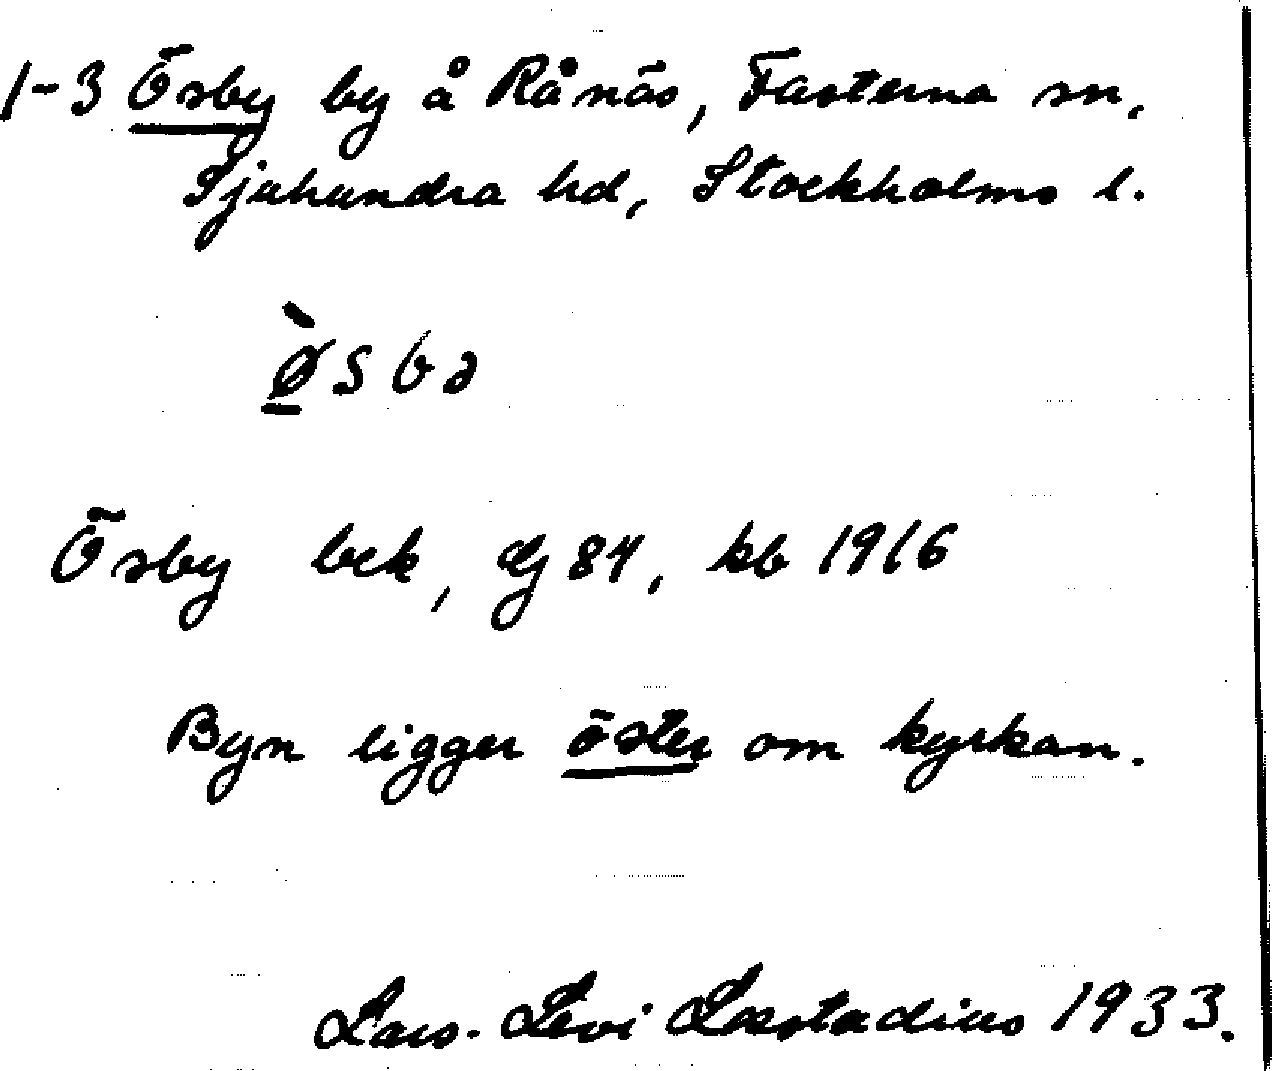 1-3 Ösby by å Rånäs, Fasterna sn,
Sjuhundra hd, Stockholms l.
ø̱̀sbə
Ösby bek, dj 84, kb 1916
Byn ligger öster om kyrkan.
Lars-Levi Læstadius 1933.